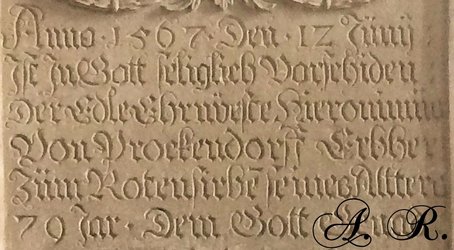 Anno · 1567 · Den · 12 Jünij
Ist In Gott seliglich Vorschiden
Der Edle Ehrnveste Hieronimus
Von Prockendorff Erbher
Zum seines Alters
79 Jar · Dem Gott
A. R.